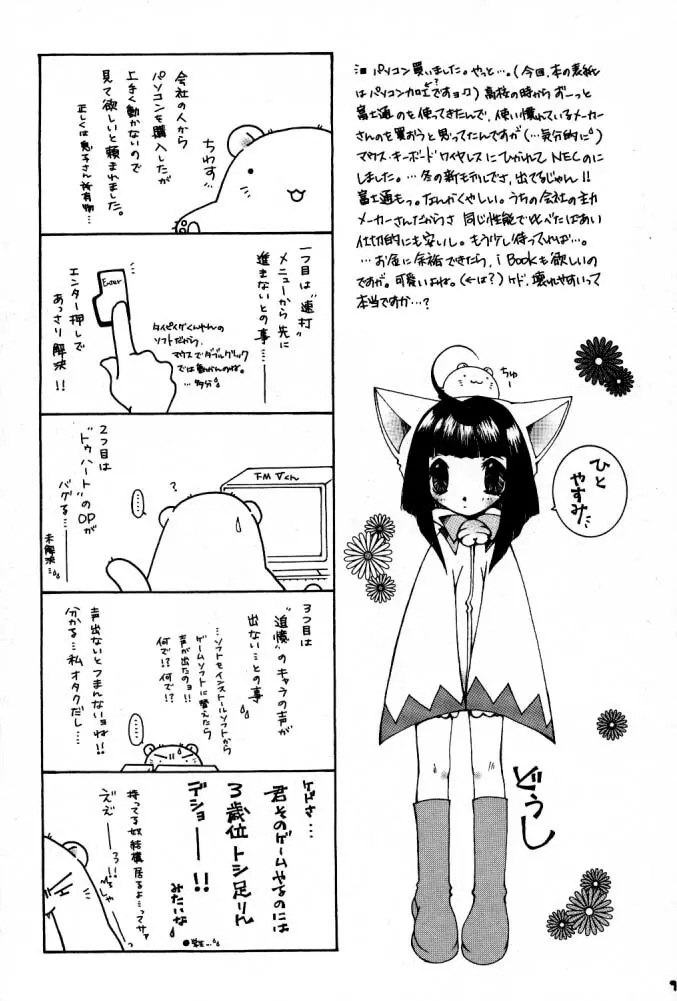 パソコン買いました。やっと…。(今回、本の表紙
はパソコン加工ですョ♪)高校の時からずーっと
富士通のを使ってきたんで、使い慣れているメーカー
さんのを買おうと思ってたんですが(…気分的に)
マウス・キーボードワイヤレスにひかれてNECのに
しました。…冬の新モデルでさ、出てるじゃん!!
富士通もっ。なんかくやしい。うちの会社の主力
メーカーさんだからさ 同じ性能で比べたばあい
仕切的にも安いし。もう少し待ってれば…。
…お金に余裕できたら、iBookも欲しいの
ですが。可愛いよね。(←は?)ケド、壊れやすいって
本当ですか…?
会社の人から
パソコンを購入したが
上手く動かないので
見て欲しいと頼まれました。
正しくは息子さん所有物…
ちわす
一つ目は“連打”
メニューから先に
進まないとの事…
Enter
タイピングくんやんの
ソフトだから、
マウスでダブルクリック
では動かんのね。
…多分
エンター押しで
あっさり解決!!
2つ目は
“トゥハート”のOPが
バグる…
未解決…
……
?
FMVくん
3つ目は
“追憶”のキャラの声が
出ない…との事
…ソフトをインストールソフトから
ゲームソフトに替えたら
声が出たのョ!!
何で!?何で!?
声出ないとつまんないョね!!
分かる…私オタクだし…
……
ケドさ…
君そのゲームやるのには
3歳位トシ足りん
デショ——!!
みたいな
持ってる奴結構居るよ…ってサァ
ええ——ろ!!
ちゅー
ひと
やすみ
どうし
9